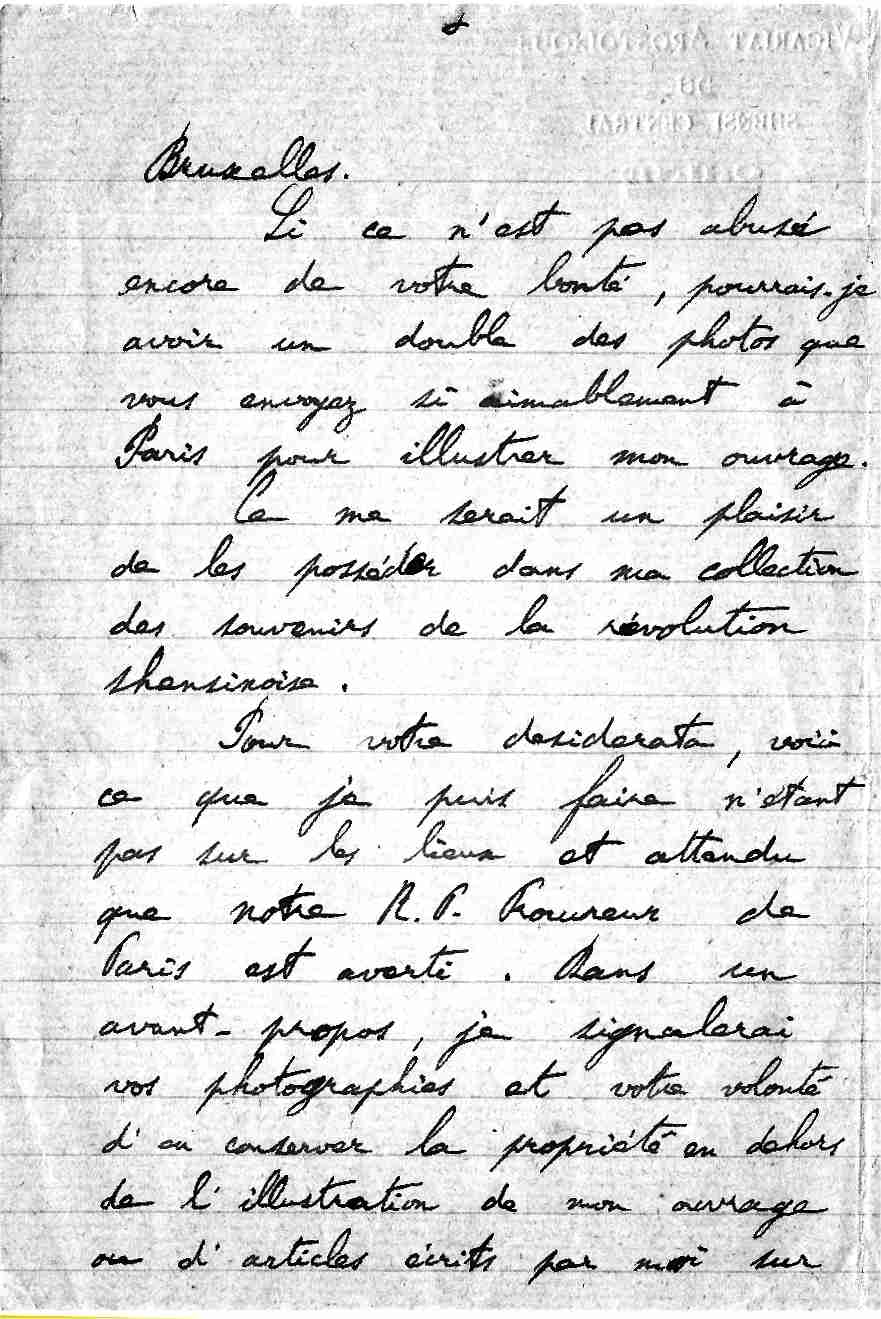 VICARIAT APOSTOLIQUE
DU
SHENSI CENTRAL
Bruxelles.
Si ce n'est pas abusé
encore de votre bonté, pourrais-je
avoir un double des photos que
vous envoyez si aimablement à
Paris pour illustrer mon ouvrage.
Ce me serait un plaisir
de les posséder dans ma collection
des souvenirs de la révolution
shensinoise.
Pour votre desiderata, voici
ce que je puis faire n'étant
pas sur les lieux et attendu
que notre R. P. Procureur de
Paris est averti. Dans un
avant-propos, je signalerai
vos photographies et votre volonté
d'en conserver la propriété en dehors
de l'illustration de mon ouvrage
ou d'articles écrits par moi sur